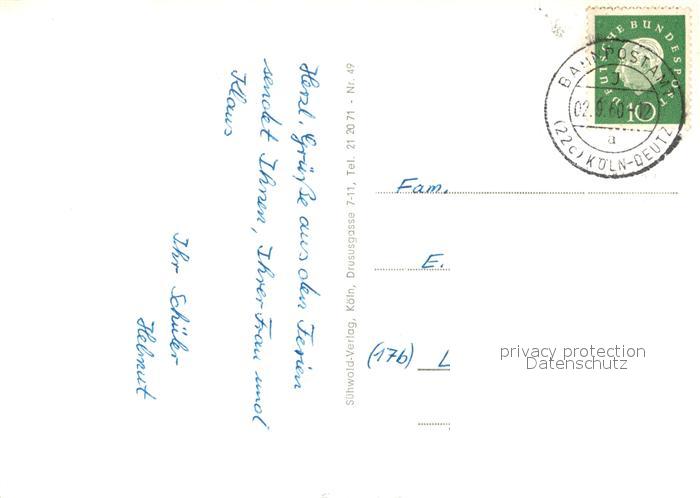 Herzl. Grüße aus den Ferien
sendet Ihnen, Ihrer Frau und
Klaus
Ihr Schüler
Helmut
Sühwold-Verlag, Köln, Drususgasse 7-11, Tel. 21 20 71 - Nr. 49
DEUTSCHE BUNDESPOST
10
BAHNPOSTAMT
J
02.9.60-12
a
(22c) KÖLN-DEUTZ
Fam.
E.
(17b) L
privacy protection
Datenschutz